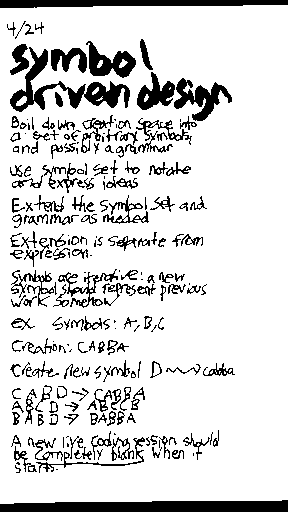 4/24
symbol
driven design
Boil down creation space into
a set of arbitrary symbols,
and possibly a grammar
use symbol set to notate
and express ideas
Extend the symbol set and
grammar as needed
Extension is separate from
expression.
Symbols are iterative: a new
symbol should represent previous
work somehow
ex. Symbols: A, B, C
Creation: CABBA
Create new symbol D ~~> cabba
C A B D → CABBA
A B C D → ABCCB
B A B D → BABBA
A new live coding session should
be completely blank when it
starts.